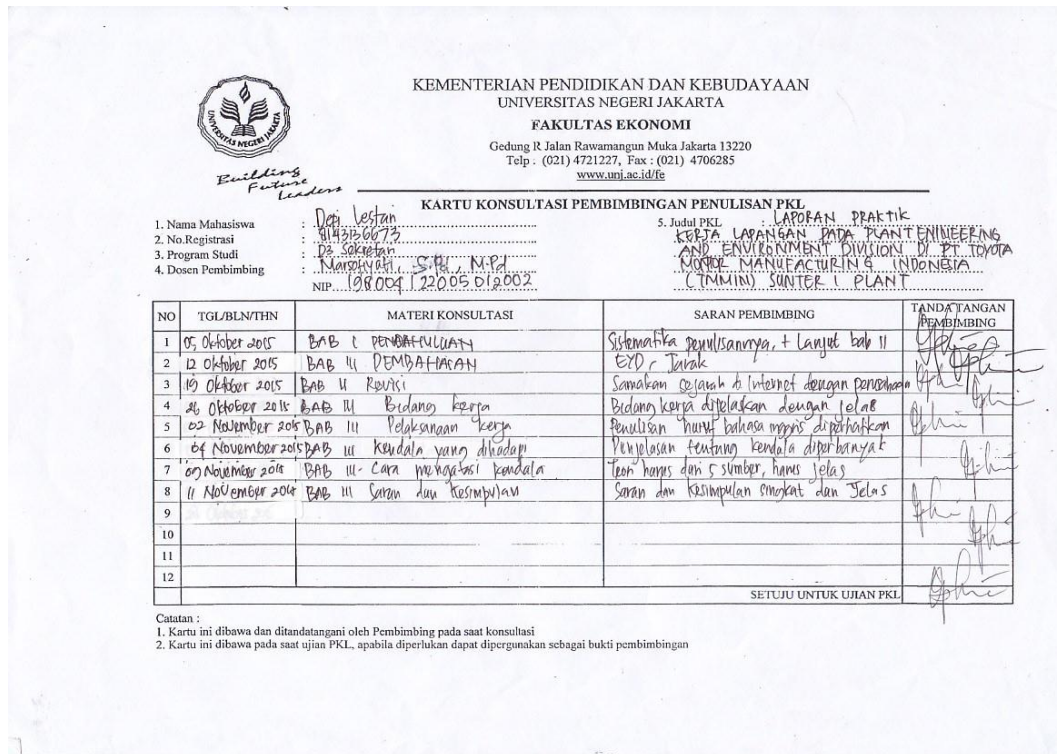 KEMENTERIAN PENDIDIKAN DAN KEBUDAYAAN
UNIVERSITAS NEGERI JAKARTA
FAKULTAS EKONOMI
Gedung R Jalan Rawamangun Muka Jakarta 13220
Telp. (021) 4721227, Fax : (021) 4706285
www.unj.ac.id/fe
UNIVERSITAS NEGERI JAKARTA
Building
Future
Leaders
KARTU KONSULTASI PEMBIMBINGAN PENULISAN PKL
1. Nama Mahasiswa : Lestari
2. No.Registrasi : 8143136673
3. Program Studi : D3 Sekretari
4. Dosen Pembimbing : Marsofiyati, S.Pd, M.Pd
NIP. 198004122005012002
5. Judul PKL : LAPORAN PRAKTIK
KERJA LAPANGAN PADA PLANT ENINEERING
AND ENVIRONMENT DIVISION DI PT TOYOTA
MOTOR MANUFACTURING INDONESIA
(TMMIN) SUNTER 1 PLANT
NO TGL/BLN/THN MATERI KONSULTASI SARAN PEMBIMBING TANDA TANGAN PEMBIMBING
1 05 Oktober 2015 BAB I PENDAHULUAN Sistematika penulisannya, + Lanjut bab II
2 12 Oktober 2015 BAB III PEMBAHASAN EYD, Jarak
3 19 Oktober 2015 BAB II Revisi Samakan sejarah di Internet dengan perusahaan
4 26 Oktober 2015 BAB III Bidang kerja Bidang kerja dijelaskan dengan jelas
5 02 November 2015 BAB III Pelaksanaan kerja Penulisan huruf bahasa inggris diperhatikan
6 04 November 2015 BAB III Kendala yang dihadapi Penjelasan tentang kendala diperbanyak
7 09 November 2015 BAB III - Cara mengatasi kendala Teori harus dari 5 sumber, harus jelas
8 11 November 2015 BAB III Saran dan Kesimpulan Saran dan Kesimpulan singkat dan Jelas
9
10
11
12
SETUJU UNTUK UJIAN PKL
Catatan :
1. Kartu ini dibawa dan ditandatangani oleh Pembimbing pada saat konsultasi
2. Kartu ini dibawa pada saat ujian PKL, apabila diperlukan dapat dipergunakan sebagai bukti pembimbingan